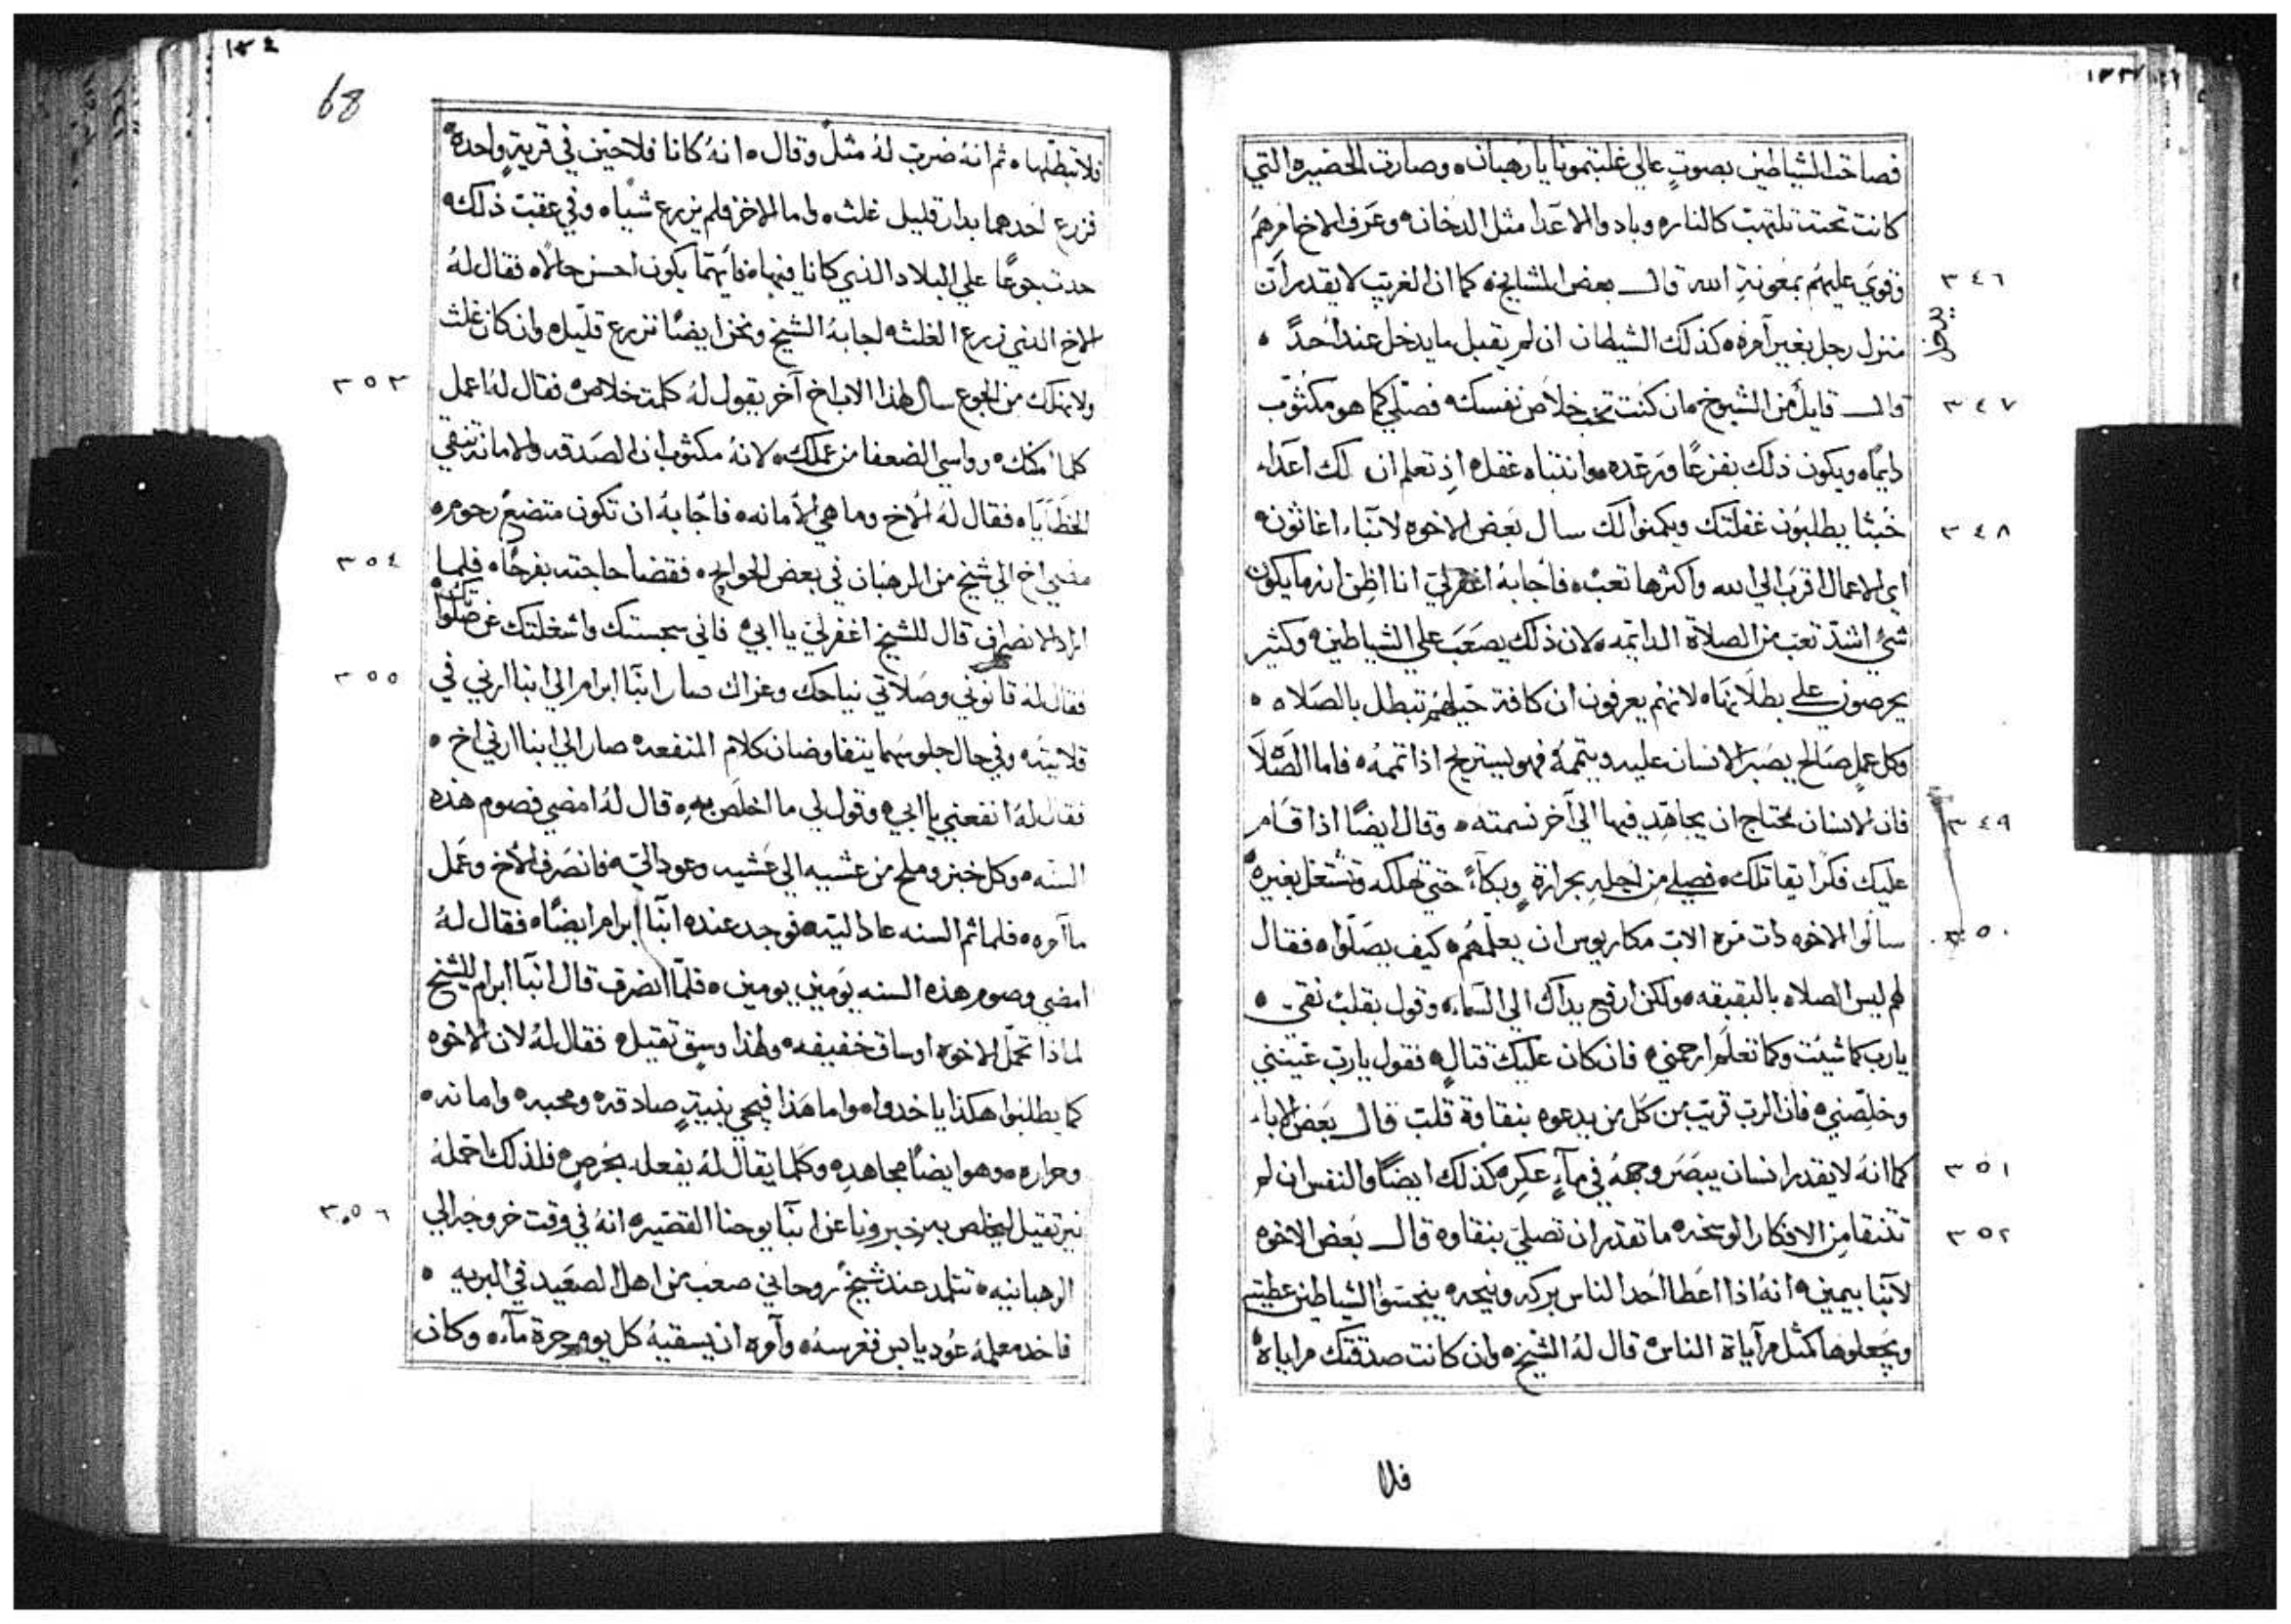 ١٣٣
فصاحت الشياطين بصوتٍ عالي غلبتمونا يا رهبان ه وصارت الحضيره التي
كانت تحته تلتهب كالنار ه وبادوا الاعدا مثل الدخان ه وعرف الاخ امرهم
٣٤٦
وقوي عليهم بمعونة الله قال بعض المشايخ ه كما ان الغريب لا يقدر ان
منزل رجل بغير آمره ه كذلك الشيطان ان لم يقبل ما يدخل عند احدً ه
٣٤٧
قال قايلٌ من الشيوخ ه ان كنت تحب خلاص نفسك ه فصلي كما هو مكتوب
دايمًا ه ويكون ذلك بفزعًا ورعده ه وانتباه عقل ه اذ تعلم ان لك اعداء
٣٤٨
خبثا يطلبون غفلتك ويكمنوا لك سال بعض الاخوه لانبا اغاثون ه
اي الاعمال اقرب الي الله واكثرها تعب ه فاجابه اغفرلي انا اظن انه ما يكون
شيٌ اشد تعب من الصلاة الدايمه ه لان ذلك يصعب علي الشياطين ه وكثير
يحرصون علي بطلانها ه لانهم يعرفون ان كافة حيلهم تبطل بالصلاه ه
وكل عملٍ صالح يصبر الانسان عليه ويتممه فهو يستريح اذا تممه ه فاما الصلا
٣٤٩
فان الانسان يحتاج ان يجاهد فيها الي آخر نسمته ه وقال ايضًا اذا قام
عليك فكرًا يقاتلك ه فصلي من اجله بحرارة وبكاءً حتي تهلكه وتشتغل بغيره
٣٥٠
سالوا الاخوه دات مره الاب مكاريوس ان يعلمهم ه كيف يصلوا ه فقال
لهم ليس الصلاه بالبقبقه ه ولكن ارفع يداك الي السماء ه وقول بقلب نقي ه
يا رب كما شيت وكما تعلم ارحمني ه فان كان عليك قتالٍ ه فقول يا رب غيثني
وخلصني ه فان الرب قريب من كل من يدعوه بنقاوة قلب قال بعض الاباء
٣٥١
كما انه لا يقدر انسان يبصر وجهه في مآءٍ عكره كذلك ايضًا والنفس ان لم
٣٥٢
تتنقا من الافكار الوسخه ه ما تقدر ان تصلي بنقاوه قال بعض الاخوه
لانبا بيمين ه انه اذا اعطا احد الناس بركه ونيحه ه ينجسوا الشياطين عطيته
ويجعلوها كمثل مرآياة الناس ه قال له الشيخ ه وان كانت صدقتك مراياة ه
فلا
١٣٤
68
فلا تبطلها ه ثم انه ضرب له مثلً وقال ه انه كانا فلاحين في قريةٍ واحده ه
فزرع احدهما بدار قليل غلث ه واما الاخر فلم يزرع شيًا ه وفي عقب ذلك ه
حدت جوعًا علي البلاد الذي كانا فيها ه فايهما يكون احسن حالًا ه فقال له
الاخ الذي زرع الغلث ه اجابه الشيخ ونحن ايضًا نزرع قليل ه وان كان غلث
٣٥٣
ولا نهلك من الجوع سال لهذا الاب اخ آخر يقول له كلمت خلاص ه فقال له اعمل
كلما امكنك ه وواسي الضعفا من عملك ه لانه مكتوب ان الصدقه والامانه تنقي
الخطايا ه فقال له الاخ وما هي الامانه ه فاجابه ان تكون متضع رحوم ه
٣٥٤
مضي اخ الي شيخ من الرهبان في بعض الحوايج ه فقضا حاجته بفرحًا ه فلما
اراد الانصراف قال للشيخ اغفرلي يا ابي ه فاني سجستك واشغلتك عن صلواتك ه
٣٥٥
فقال له قانوني وصلاتي نياحك وعزاك صار انبا ابرام الي انبا اري في
قلايته ه وفي حال جلوسهما يتفاوضان كلام المنفعه ه صار الي انبا اري اخ ه
فقال له انفعني يا ابي ه وقول لي ما اخلص به ه قال له امضي فصوم هذه
السنه ه وكل خبز وملح من عشيه الي عشيه وعود الي ه فانصرف الاخ وعمل
ما آمره ه فلما تم السنه عاد اليه ه فوجد عنده انبا ابرام ايضًا ه فقال له
امضي وصوم هذه السنه يومين يومين ه فلما انصرف قال انبا ابرام للشيخ
لماذا تحمل الاخوه اوساق خفيفه ه ولهذا وسق تقيل ه فقال له لان الاخوه
كما يطلبوا هكذا ياخدوا ه واما هذا فيجي بنيةٍ صادقه ه ومحبه ه وامانه ه
وحراره ه وهو ايضًا مجاهد ه وكلما يقال له يفعله بحرص ه فلذلك احمله
٣٥٦
نير تقيل ليخلص به خبرونا عن انبا يوحنا القصير ه انه في وقت خروجه الي
الرهبانيه ه تتلمد عند شيخٌ روحاني صعب من اهل الصعيد في البريه ه
فاخد معلمه عود يابس فغرسه ه وآمره ان يسقيه كل يوم جرة مآء ه وكان